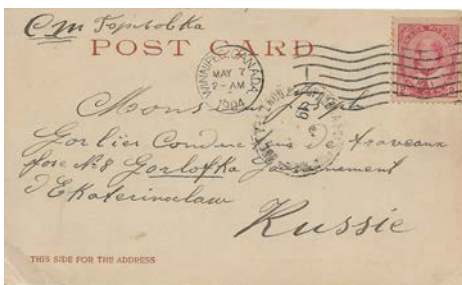 POST CARD
WINNIPEG, CANADA
MAY 7
2 - AM
1904
Monsieur Joseph
Gorlier Conducteur de travaux
fosse No 8 Gorlofka Gouvernement
d'Ekaterinoslaw
Russie
THIS SIDE FOR THE ADDRESS